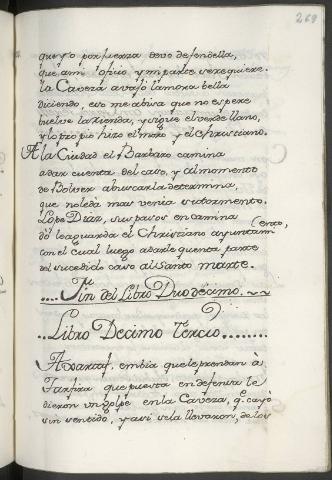 269
que yo por fuerza devo defendella,
que a mi oficio y mi parte se requiere.
la Caveza avajó la mora bella
diciendo, eso me abisa que no espere
buelve la rienda, y sigue el verde llano,
y lo propio hizo el moro y el Christiano.
A la Ciudad el Barbaro camina
a dar cuenta del caso, y al momento
de bolver a buscarla determina,
que no le da mas venia su tormento.
Lope Diaz, sus pasos encamina
do le aguarda el Christiano ayuntami
(ento,
con el cual luego a darle quenta parte
del sucedido caso al Santo marte.
.... Fin del Libro Duodecimo. ~~
.. Libro Decimo Tercio ........
Axartaf, embia que le prendan à
Tarfira que puesta en defensa le
dieron un golpe en la Caveza, q.e cayó
sin sentido, y asi se la llevaron, de los